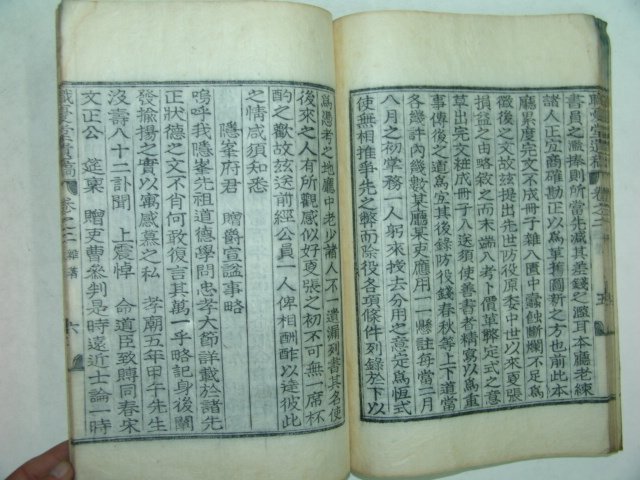 書員之濫捧則所當先減其差錢之濫耳本廳老練
諸人正宜商確勘正以爲革舊圖新之方也前此本
廳累度完文不成冊子雜入匱中蠹蝕斷爛不足爲
損益之由略敘之而末端八考卜價草弊定式之意
草出完文粧成冊子八送須使善書者精寫以爲重
事傳後之道爲宜其後錄防役錢春秋等上下道當
各幾許內幾數某廳某吏應用一一懸註每當二月
八月之初掌務一人躬來授去分用之意定爲恒式
使無相推爭先之弊而除役各項條件列錄於下以
爲憑考之地廳中老少諸人不一遺漏列書其名使
後來之人有所觀感似好夏張之初不可無一席杯
酌之歡故玆送前經公員一人俾相酬酢以達彼此
之情感須知悉
隱峯府君 贈爵宣諡事略
嗚呼我隱峯先祖道德學問忠孝大節詳載於諸先
正狀德之文不肖何敢復言其萬一乎略記身後闡
發揄揚之實以寓感慕之私 孝朝五年甲午先生
沒壽八十二訃聞 上震悼 命道臣致賻同春宋
文正公 筵稟 贈吏曹參判是時遠近士論一時
卷之二 雜著 六